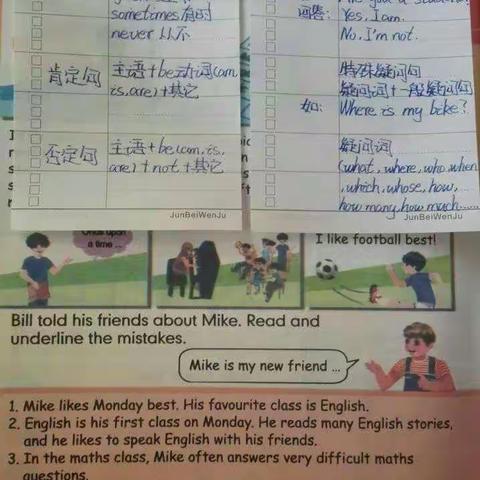 sometimes 有时
never 从不
肯定句
主语+be动词(am
is, are)+其它
否定句
主语+be(am, is,
are)+not+其它
JunBeiWenJu
回答:
Yes, I am.
No, I'm not.
特殊疑问句
疑问词+一般疑问句
如:
Where is my bike?
疑问词
(what, where, who, when
, which, whose, how,
how many, how much......
JunBeiWenJu
Once upon
a time ...
I like football best!
Bill told his friends about Mike. Read and
underline the mistakes.
Mike is my new friend ...
1. Mike likes Monday best. His favourite class is English.
2. English is his first class on Monday. He reads many English stories,
and he likes to speak English with his friends.
3. In the maths class, Mike often answers very difficult maths
questions.